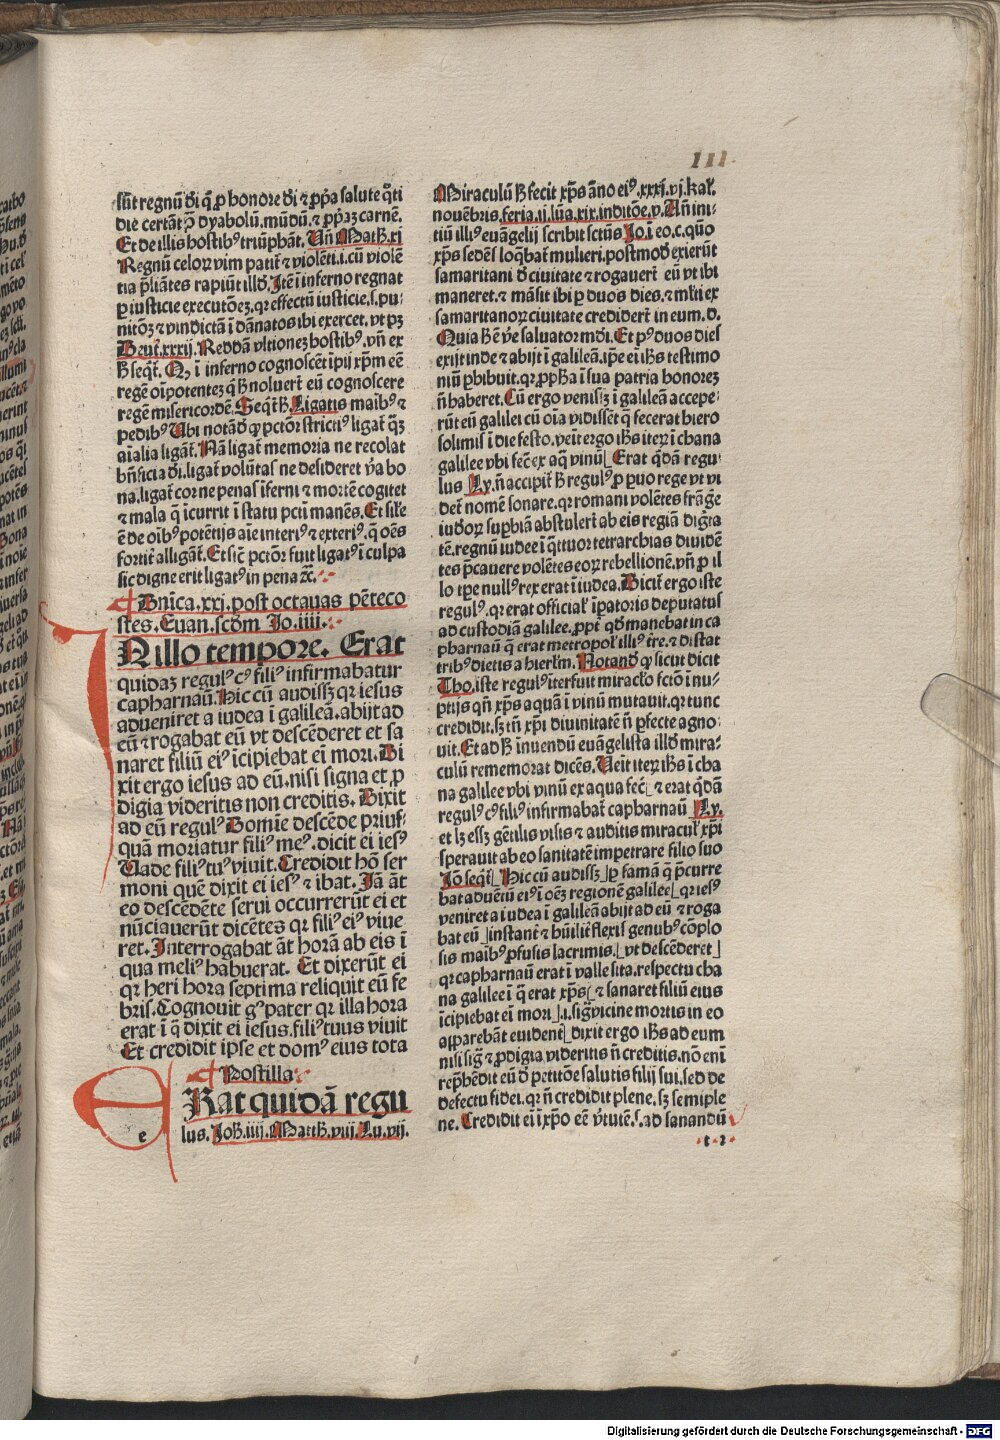 111
sūt regnū di q̄ ꝓ honore di ⁊ ꝓp̄a salute q̄ti
die certāt ꝯ dyabolū. mūdū. ⁊ ꝓp̄aꝫ carnē.
Et de illis hostib⁹ triūphāt. Uñ Math. xi
Regnū celoꝝ vim patit̄ ⁊ violēti. i. cū violē
tia p̄liātes rapiūt illđ. Itē ī inferno regnat
ꝑ iusticie executōeꝫ. qꝛ effectū iusticie. s. pu-
nitōꝫ ⁊ vindictā ī dānatos ibi exercet. vt pꝫ
Deut. xxxij. Reddā vltioneꝫ hostib⁹. vñ ex
h̄ seqt̄. Qꝫ ī inferno cognoscēt īpij xp̄m eē
regē oīpotenteꝫ q̄ h̄ noluert̄ eū cognoscere
regē misericordē. Seqt̄ h̄. Ligatis maib⁹ ⁊
pedib⁹ Ubi notād ꝙ pctōr strictı⁹ ligat̄ q̄ꝫ
aīalia ligāt̄. Nā ligat̄ memoria ne recolat
bn̄ficia di. ligat̄ volūtas ne desideret v̄a bo
na. ligat̄ cor ne penas iferni ⁊ mortē cogitet
⁊ mala q̄ īcurrit ī statu pcti manēs. Et sil̄r
ē de oīb⁹ potētijs aīe interi⁹ ⁊ exteri⁹. q̄ oēs
fortit̄ alligāt̄. Et sic̄ pctōr fuit ligat⁹ ī culpa
sic digne erit ligat⁹ in pena ⁊c̄.
¶ Dn̄ica. xxj. post octauas pēteco
stes. Euan. scđm Jo. iiii.
IN illo tempore. Erat
quidaꝫ regul⁹ c⁹ fili⁹ infirmabatur
capharnaū. Hic cū audissꝫ qꝛ iesus
adueniret a iudea ī galileā. abijt ad
eū ⁊ rogabat eū vt descēderet et sa
naret filiū ei⁹ īcipiebat eī mori. Di
xit ergo iesus ad eū. nisi signa et ꝓ
digia videritis non creditis. Dixit
ad eū regul⁹ Domīe descēde priuſ-
quā moriatur fili⁹ me⁹. dicit ei ies⁹
Uade fili⁹ tu⁹ viuit. Credidit hō ser
moni quē dixit ei ies⁹ ⁊ ibat. Jā āt
eo descēdēte serui occurrerūt ei et
nūciauerūt dicētes qꝛ fili⁹ ei⁹ viue
ret. Interrogabat āt horā ab eis ī
qua meli⁹ habuerat. Et dixerūt ei
qꝛ heri hora septima reliquit eū fe
bris. Cognouit g⁹ pater qꝛ illa hora
erat ī q̄ dixit ei iesus. fili⁹ tuus viuit
Et credidit ipse et dom⁹ eius tota
¶ Postilla
ERat quidā regu
e
lus. Joh. iiij. Matth. viij. Lu. vij.
Miraculū h̄ fecit xp̄s āno ei⁹. xxxj. vj. kal̄.
nouēbris. feria. ij. lūa. xix. inditōe. v. Uñ ini-
tiū illi⁹ euāgelij scribit sctūs Jo. ī eo. c. quo
xp̄s sedēs loq̄bat̄ mulieri. postmod exierūt
samaritani đ ciuitate ⁊ rogauert̄ eū vt ibi
maneret. ⁊ māsit ibi ꝑ duos dies. ⁊ ml̄ti ex
samaritanoꝝ ciuitate credidert̄ in eum. đ.
Quia h̄ ē v̄e saluator mdi. Et p⁹ duos dies
exijt inde ⁊ abijt ī galileā. ip̄e eī ih̄s testimo
niū ꝑhibuit. qꝛ ꝓph̄a ī sua patria honoreꝫ
n̄ haberet. Cū ergo venisꝫ ī galileā accepe-
rūt eū galilei cū oīa vidissēt q̄ fecerat hiero
solimis ī die festo. veīt ergo ih̄s iteꝝ ī chana
galilee vbi fec̄ ex aq̄ vinū⌊ Erat q̄dā regu
lus ⌊y. n̄ accipit̄ h̄ regul⁹ ꝓ puo rege vt vi
det̄ nomē sonare. qꝛ romani volētes frāḡe
iudoꝝ suꝑbiā abstulert̄ ab eis regiā digni
tē. regnū iudee ī q̄ttuor tetrarchias diuidē
tes p̄cauere volētes eoꝝ rebellionē. vñ ꝓ il
lo tꝑe null⁹ rex erat ī iudea. Dicit̄ ergo iste
regul⁹. qꝛ erat official̄ īꝑatoris deputatus
ad custodiā galilee. ꝓpt̄ qđ manebat in ca
pharnaū q̄ erat metropol̄ illi⁹ tr̄e. ⁊ distat
trib⁹ dietis a hierl̄m. Notand ꝙ sicut dicit
Tho. iste regul⁹ īterfuit miracl̄o fctō ī nu-
ptijs qn̄ xp̄s aquā ī vinū mutauit. qꝛ tunc
credidit. sꝫ tn̄ xp̄i diuinitatē n̄ ꝑfecte agno-
uit. Et ad h̄ inuendū euāgelista illđ mira-
culū rememorat dicēs. Ueīt iteꝝ ih̄s ī cha
na galilee vbi vinū ex aqua fec̄⌊ ⁊ erat q̄dā
regul⁹ c⁹ fili⁹ infirmabat̄ capharnaū ⌊y.
et lꝫ essꝫ gētilis visis ⁊ auditis miracul̄ xp̄i
sperauit ab eo sanitatē impetrare filio suo
Jō seqt̄⌊ Hic cū audissꝫ⌋ ꝑ famā q̄ p̄curre
bat aduētū ei⁹ ī oēꝫ regionē galilee⌊ qꝛ ies⁹
veniret a iudea ī galileā abijt ad eū ⁊ roga
bat eū ⌋instant̄ ⁊ hūilit̄ flexis genub⁹ cōplo
sis maib⁹ ꝑfusis lacrimis⌊ vt descēderet⌋
qꝛ capharnaū erat ī valle sita. respectu cha
na galilee ī q̄ erat xp̄s⌊ ⁊ sanaret filiū eius
īcipiebat eī mori⌋. i. sig̃ vicine mortis in eo
apparebāt euident̄⌊ dixit ergo ih̄s ad eum
nisi sig̃ ⁊ ꝓdigia videritis n̄ creditis. nō enī
rep̄hēdit eū đ petitōe salutis filij sui. sed de
defectu fidei. qꝛ n̄ credidit plene. sꝫ semiple
ne. Credidit eī ī xp̄o eē v̄tutē. s. ad sanandū
t 2
Digitalisierung gefördert durch die Deutsche Forschungsgemeinschaft - DFG